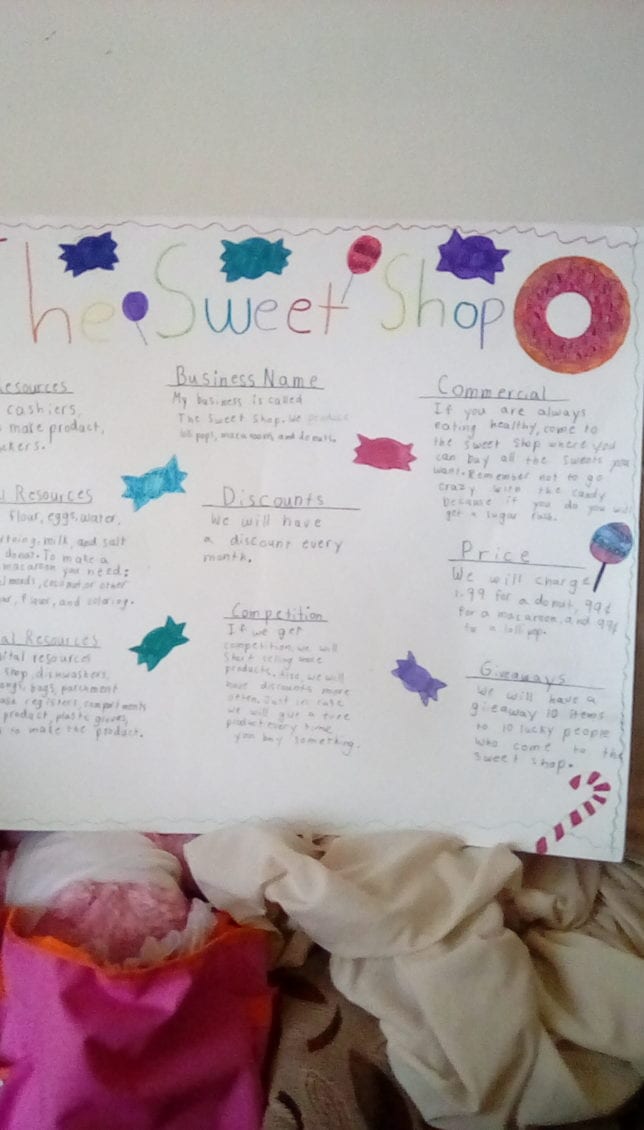 The Sweet Shop
esources
cashiers,
make product,
kers.
Resources
flour, eggs, water,
milk, and salt
donut. To make a
macaroon you need:
coconut or other
flavor, and coloring.
al Resources
ital resources
shop, dishwashers,
bags, parchment
registers, compartments
product, plastic gloves,
to make the product.
Business Name
My business is called
The Sweet Shop. We produce
lollipops, macaroons, and donuts.
Discounts
We will have
a discount every
month.
Competition
If we get
competition, we will
Start selling more
products. Also, we will
have discounts more
often. Just in case
we will give a free
product every time
you buy something.
Commercial
If you are always
eating healthy, come to
the sweet shop where you
can buy all the sweets you
want. Remember not to go
crazy with the candy
because if you do you will
get a sugar rush.
Price
We will charge
1.99 for a donut, 99¢
for a macaroon, and 99¢
for a lollipop.
Giveaways
We will have a
giveaway 10 items
to 10 lucky people
who come to the
sweet shop.